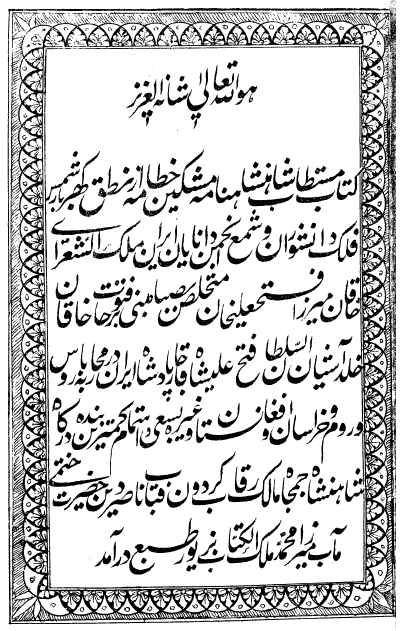 هو الله تعالی شانه العزیز
کتاب مستطاب شاهنشاهنامه مشکین خطامه از منطق گهربار شمس
فلک دانشوران و شمع انجمن دانایان ایران ملک الشعرای
خاقان میرزا فتحعلیخان متخلص بصبا مبنی بر فتوحات خاقان
خلد آستیان السلطان فتح علیشاه قاجار پادشاه ایران در محاربه روس
و روم و خراسان و افغانستان و غیره بسعی و اهتمام کمترین بنده درگاه
شاهنشاه جمجاه مالک رقاب گردون قباب ناصر دین حضرت ختمی
مآب میرزا محمد ملک الکتاب بزیور طبع درآمد